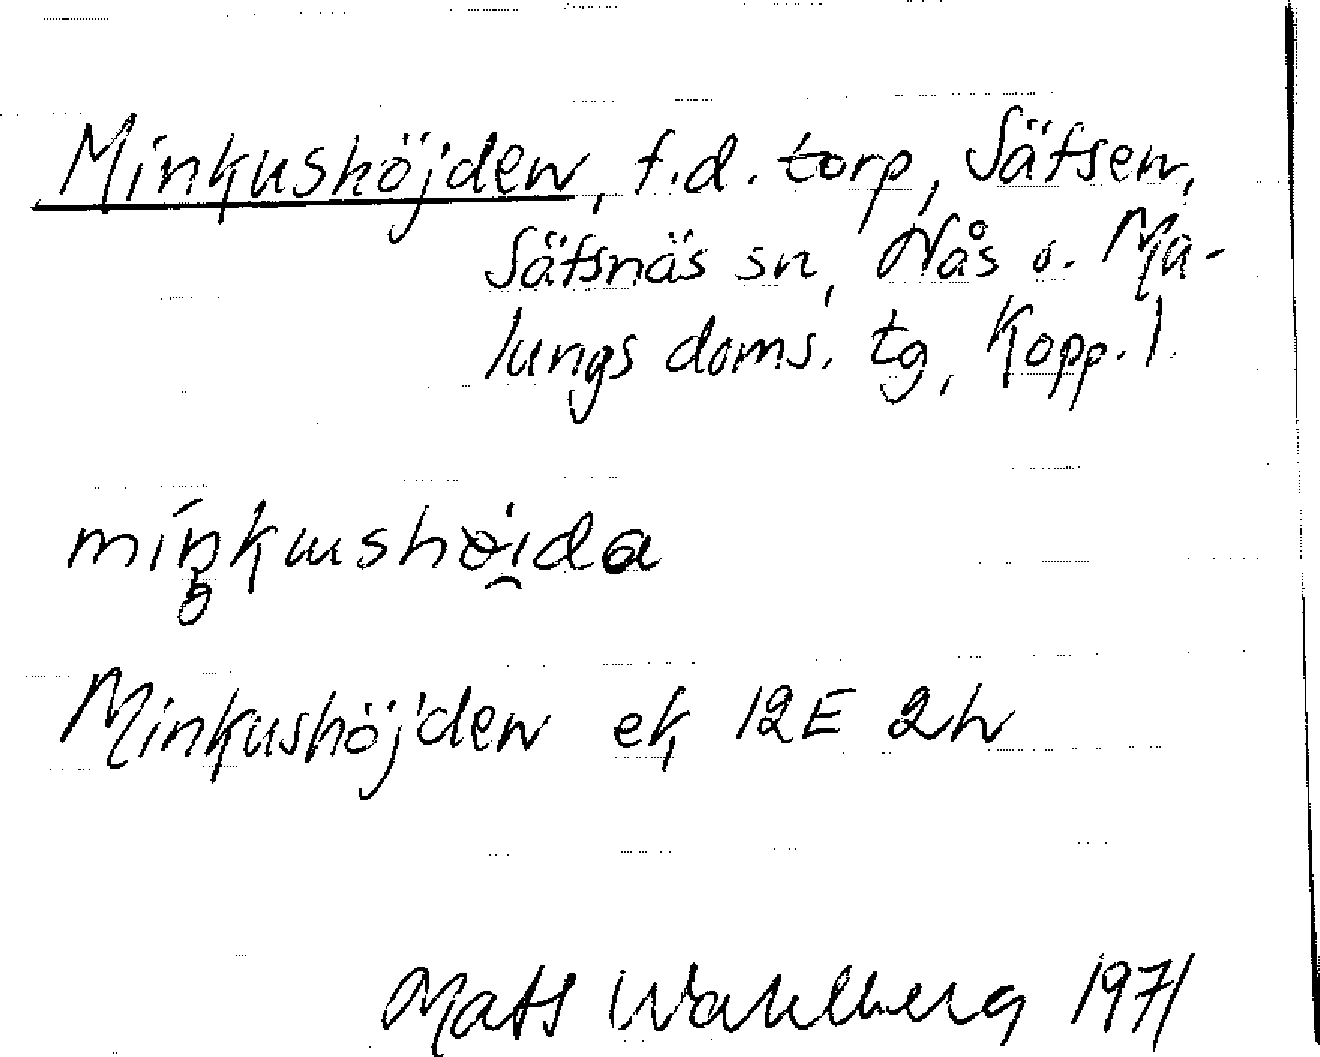 Minkushöjden, f.d. torp, Säfsen,
Säfsnäs sn, Nås o. Ma-
lungs doms. tg, Kopp. l.
Minkushöjden ek 12E 2h
Mats Wahlberg 1971